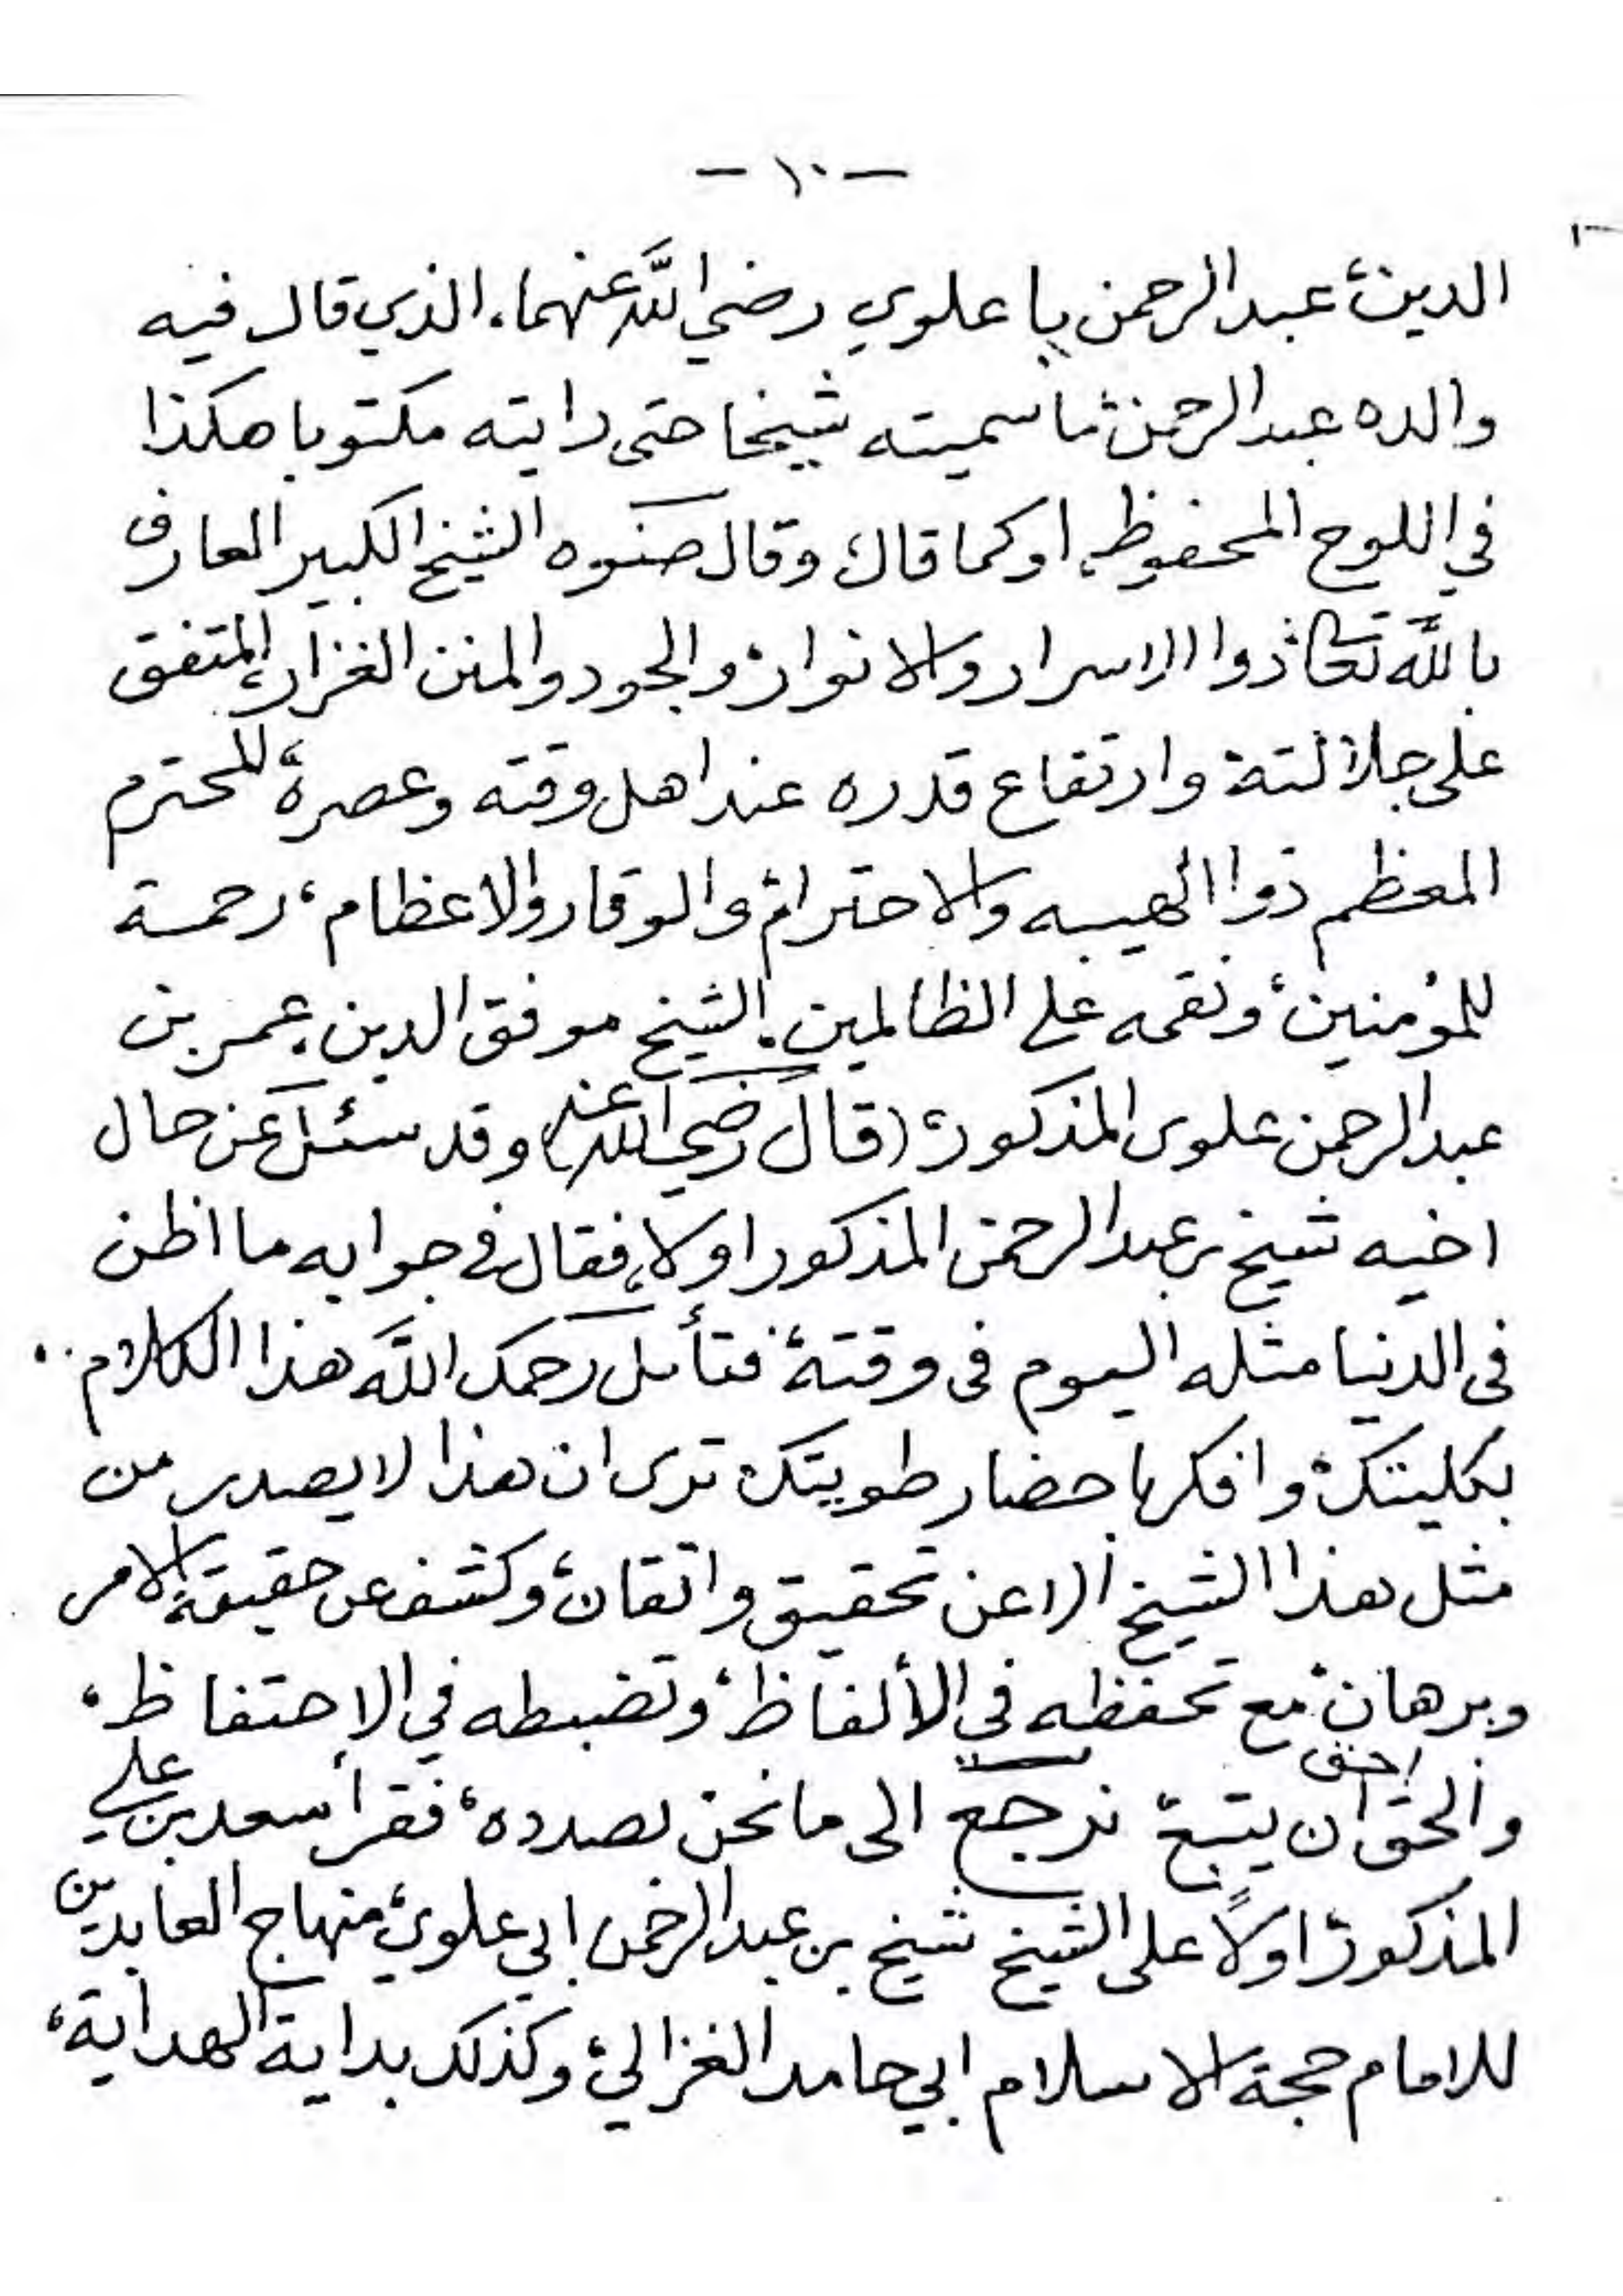 — ١٠ —
الدين، عبد الرحمن با علوي رضي اللّه عنهما، الذي قال فيه
والده عبد الرحمن، ما سميته شيخا حتى رايته مكتوبا هكذا
في اللوح المحفوظ، او كما قال، وقال صنوه الشيخ الكبير العارف
باللّه تعالى، ذوا الاسرار والانوار، والجود والمنن الغزار، المتفق
على جلالتة وارتفاع قدره عند اهل وقته وعصرة، المحترم
المعظم ذوا الهيبه والاحترام، والوقار والاعظام، رحمة
للمؤمنين، ونقمه على الظالمين. الشيخ موفق الدين، عمر بن
عبد الرحمن علوى المذكور، (قال رضي الله عنه) وقد سئل عن حال
اخيه شيخ بن عبد الرحمن المذكور اولا، فقال في جوابه ما اظن
فى الدنيا مثله اليوم فى وقتة، فتأمل رحمك اللّه هذا الكلام
بكليتك، وافكر باحضار طويتك، ترى ان هذا لا يصدر من
مثل هذا الشيخ الا عن تحقيق واتقان، وكشف عن حقيقة الامر
وبرهان، مع تحفظه في الألفاظ، وتضبطه في الاحتفاظ،
والحق احق ان يتبع، نرجع الى ما نحن بصدده، فقرأ سعد بن علي
المذكور، اولاً على الشيخ شيخ بن عبد الرحمن ابي علوي، منهاج العابدين
للامام حجة الاسلام ابي حامد الغزالي، وكذلك بداية الهداية،